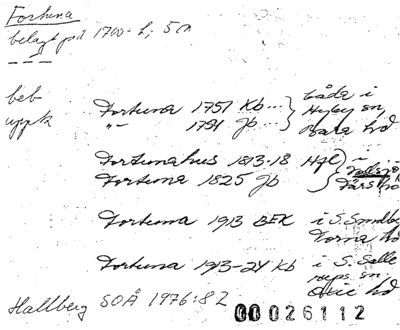 Fortuna
belagt på 1700-t, 5 n
beb
uppk
Fortuna 1751 Kb... } båda i
-"- 1794 Jb... } Hyby sn
Bara hd
Fortunahus 1813-18 Hfl } i
Fortuna 1825 Jb } Färs hd
Fortuna 1913 BEK i S. Sandby
Torna hd
Fortuna 1913-24 Kb i S. Salle
rups sn
Oxie hd
Hallberg SOÅ 1976:82
00026112